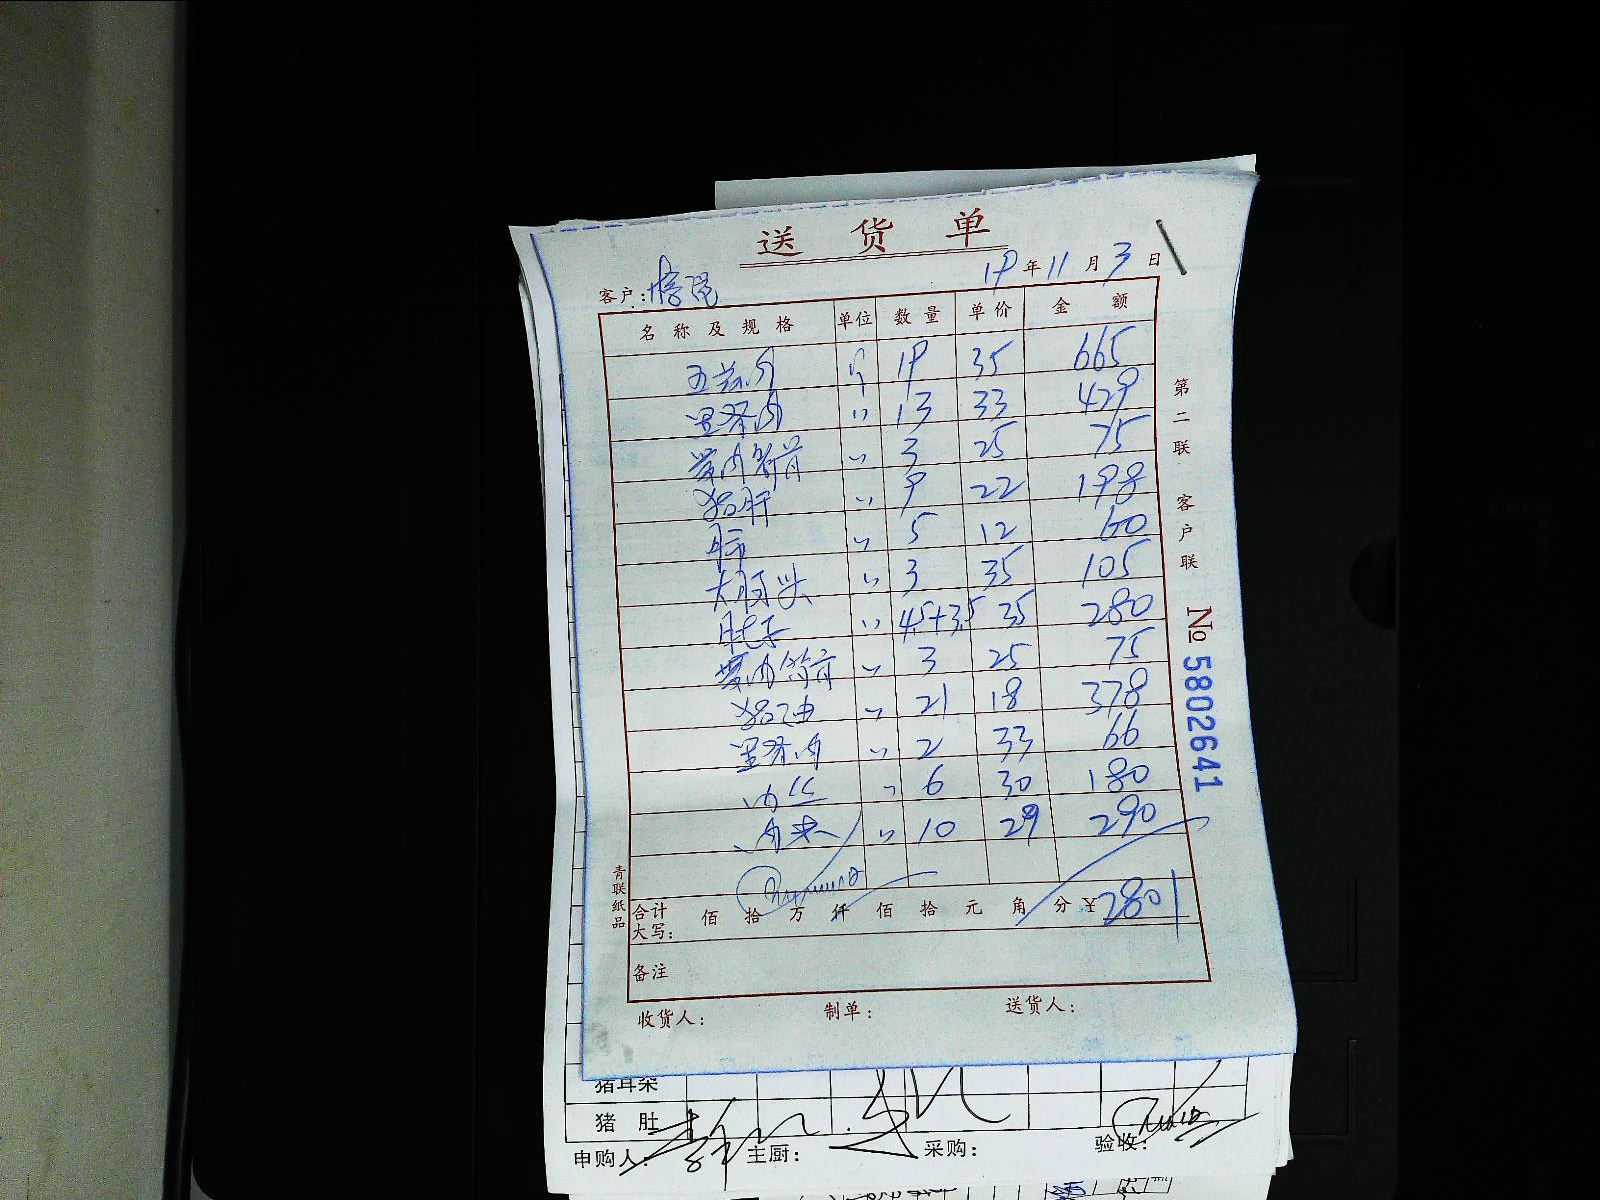 送货单
19年11月3日
客户:
名称及规格 单位 数量 单价 金额
五花肉 斤 19 35 665
里脊肉 〃 13 33 429
带肉筒骨 〃 3 25 75
猪肝 〃 9 22 198
〃 5 12 60
大肚头 〃 3 35 105
肚子 〃 4.5+3.5 35 280
带肉筒骨 〃 3 25 75
猪油 〃 21 18 378
里脊肉 〃 2 33 66
肉丝 〃 6 30 180
肉末 〃 10 29 290
合计大写: 佰拾万仟佰拾元角分 ¥2801
备注
收货人: 制单: 送货人:
第二联 客户联
№5802641
青联纸品
猪耳朵
猪肚
申购人: 主厨: 采购: 验收: